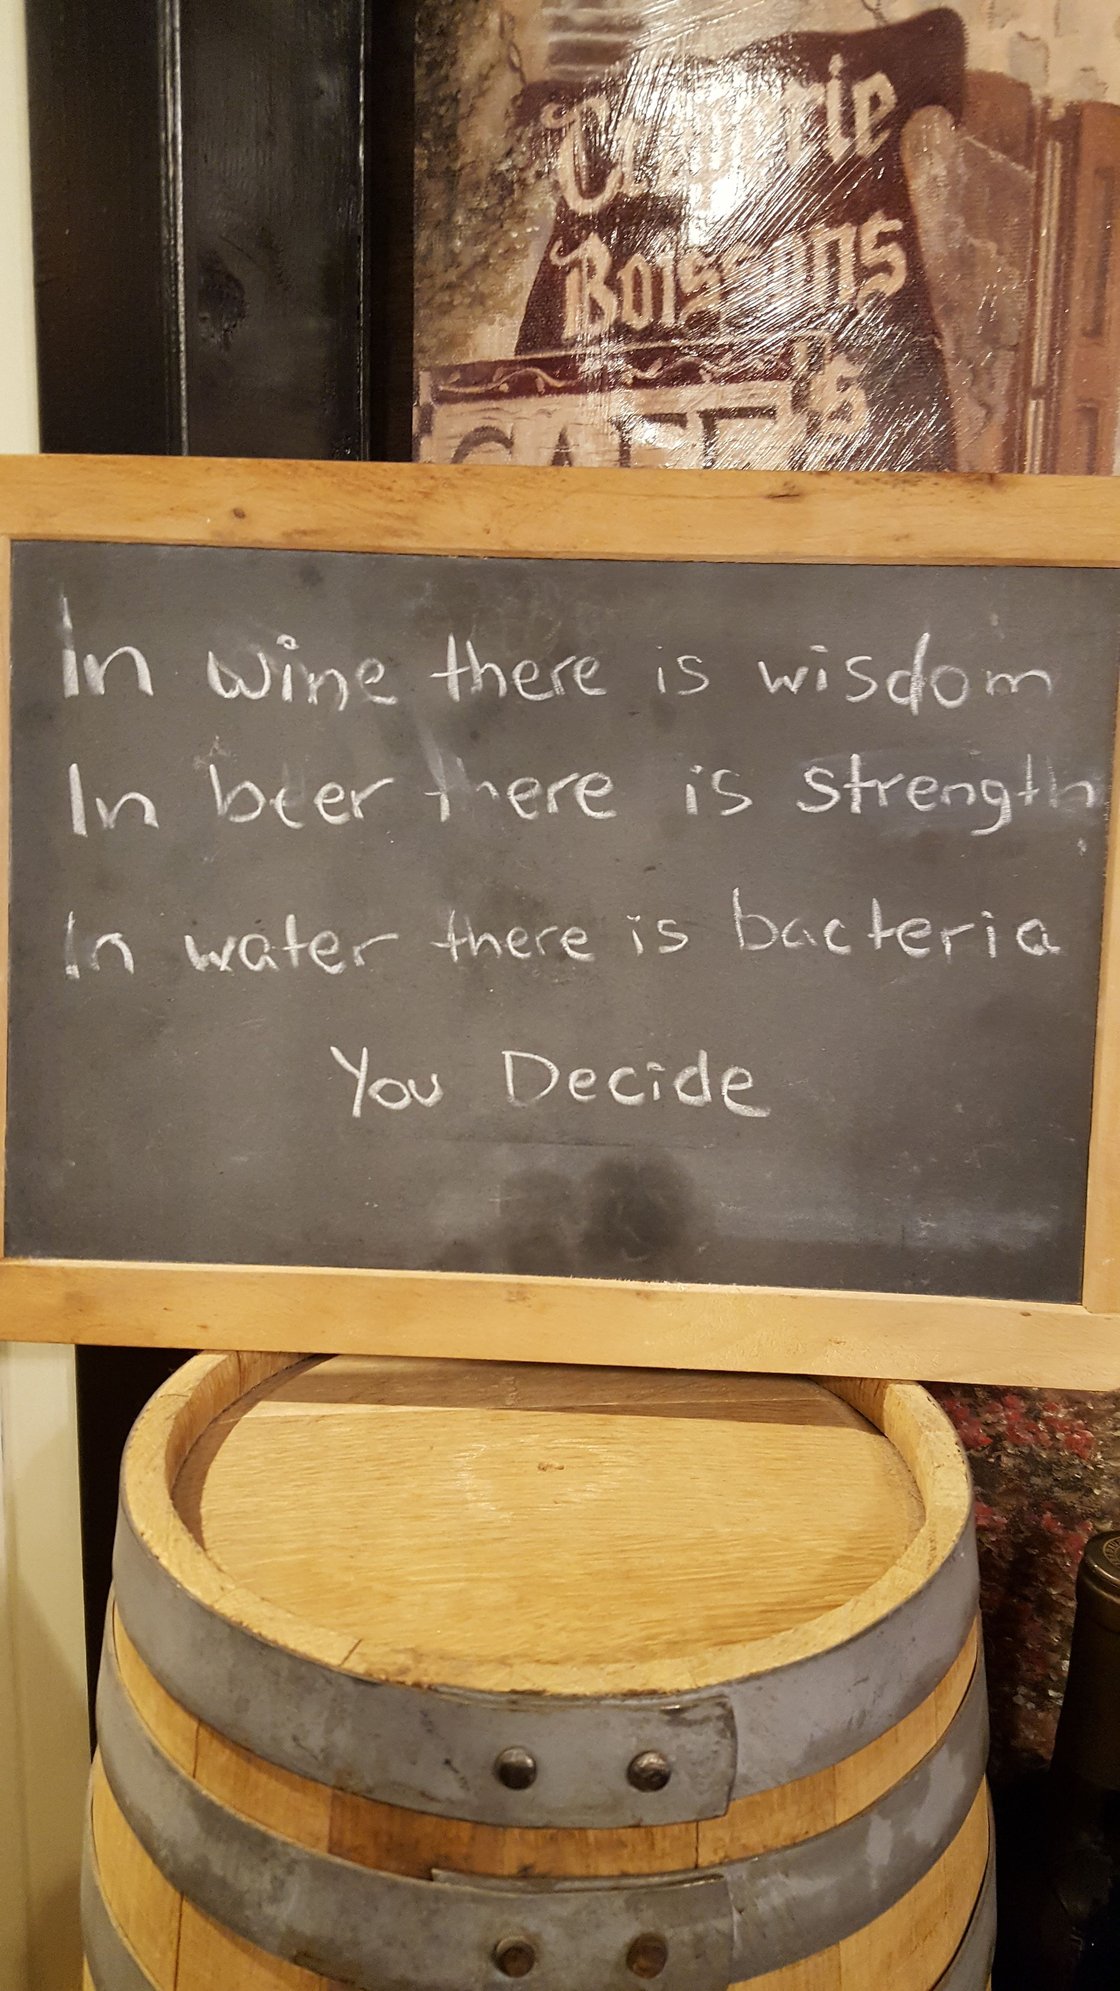 Boissons
CAFE's
In wine there is wisdom
In beer there is strength
In water there is bacteria
You Decide